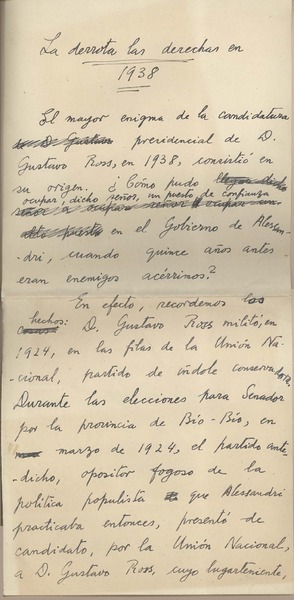 La derrota las derechas en
1938
El mayor enigma de la candidatura
de D. Gustavo presidencial de D.
Gustavo Ross, en 1938, consistió en
su origen. ¿Cómo pudo llegar dicho
ocupar, dicho señor, un puesto de confianza
señor a ocupar
alto puesto en el Gobierno de Alessan-
-dri, cuando quince años antes
eran enemigos acérrimos?
En efecto, recordemos los
hechos: D. Gustavo Ross militó, en
1924, en las filas de la Unión Na-
-cional, partido de índole conservadora.
Durante las elecciones para Senador
por la provincia de Bío-Bío, en
marzo de 1924, el partido ante-
-dicho, opositor fogoso de la
política populista que Alessandri
practicaba entonces, presentó de
candidato, por la Unión Nacional,
a D. Gustavo Ross, cuyo lugarteniente,